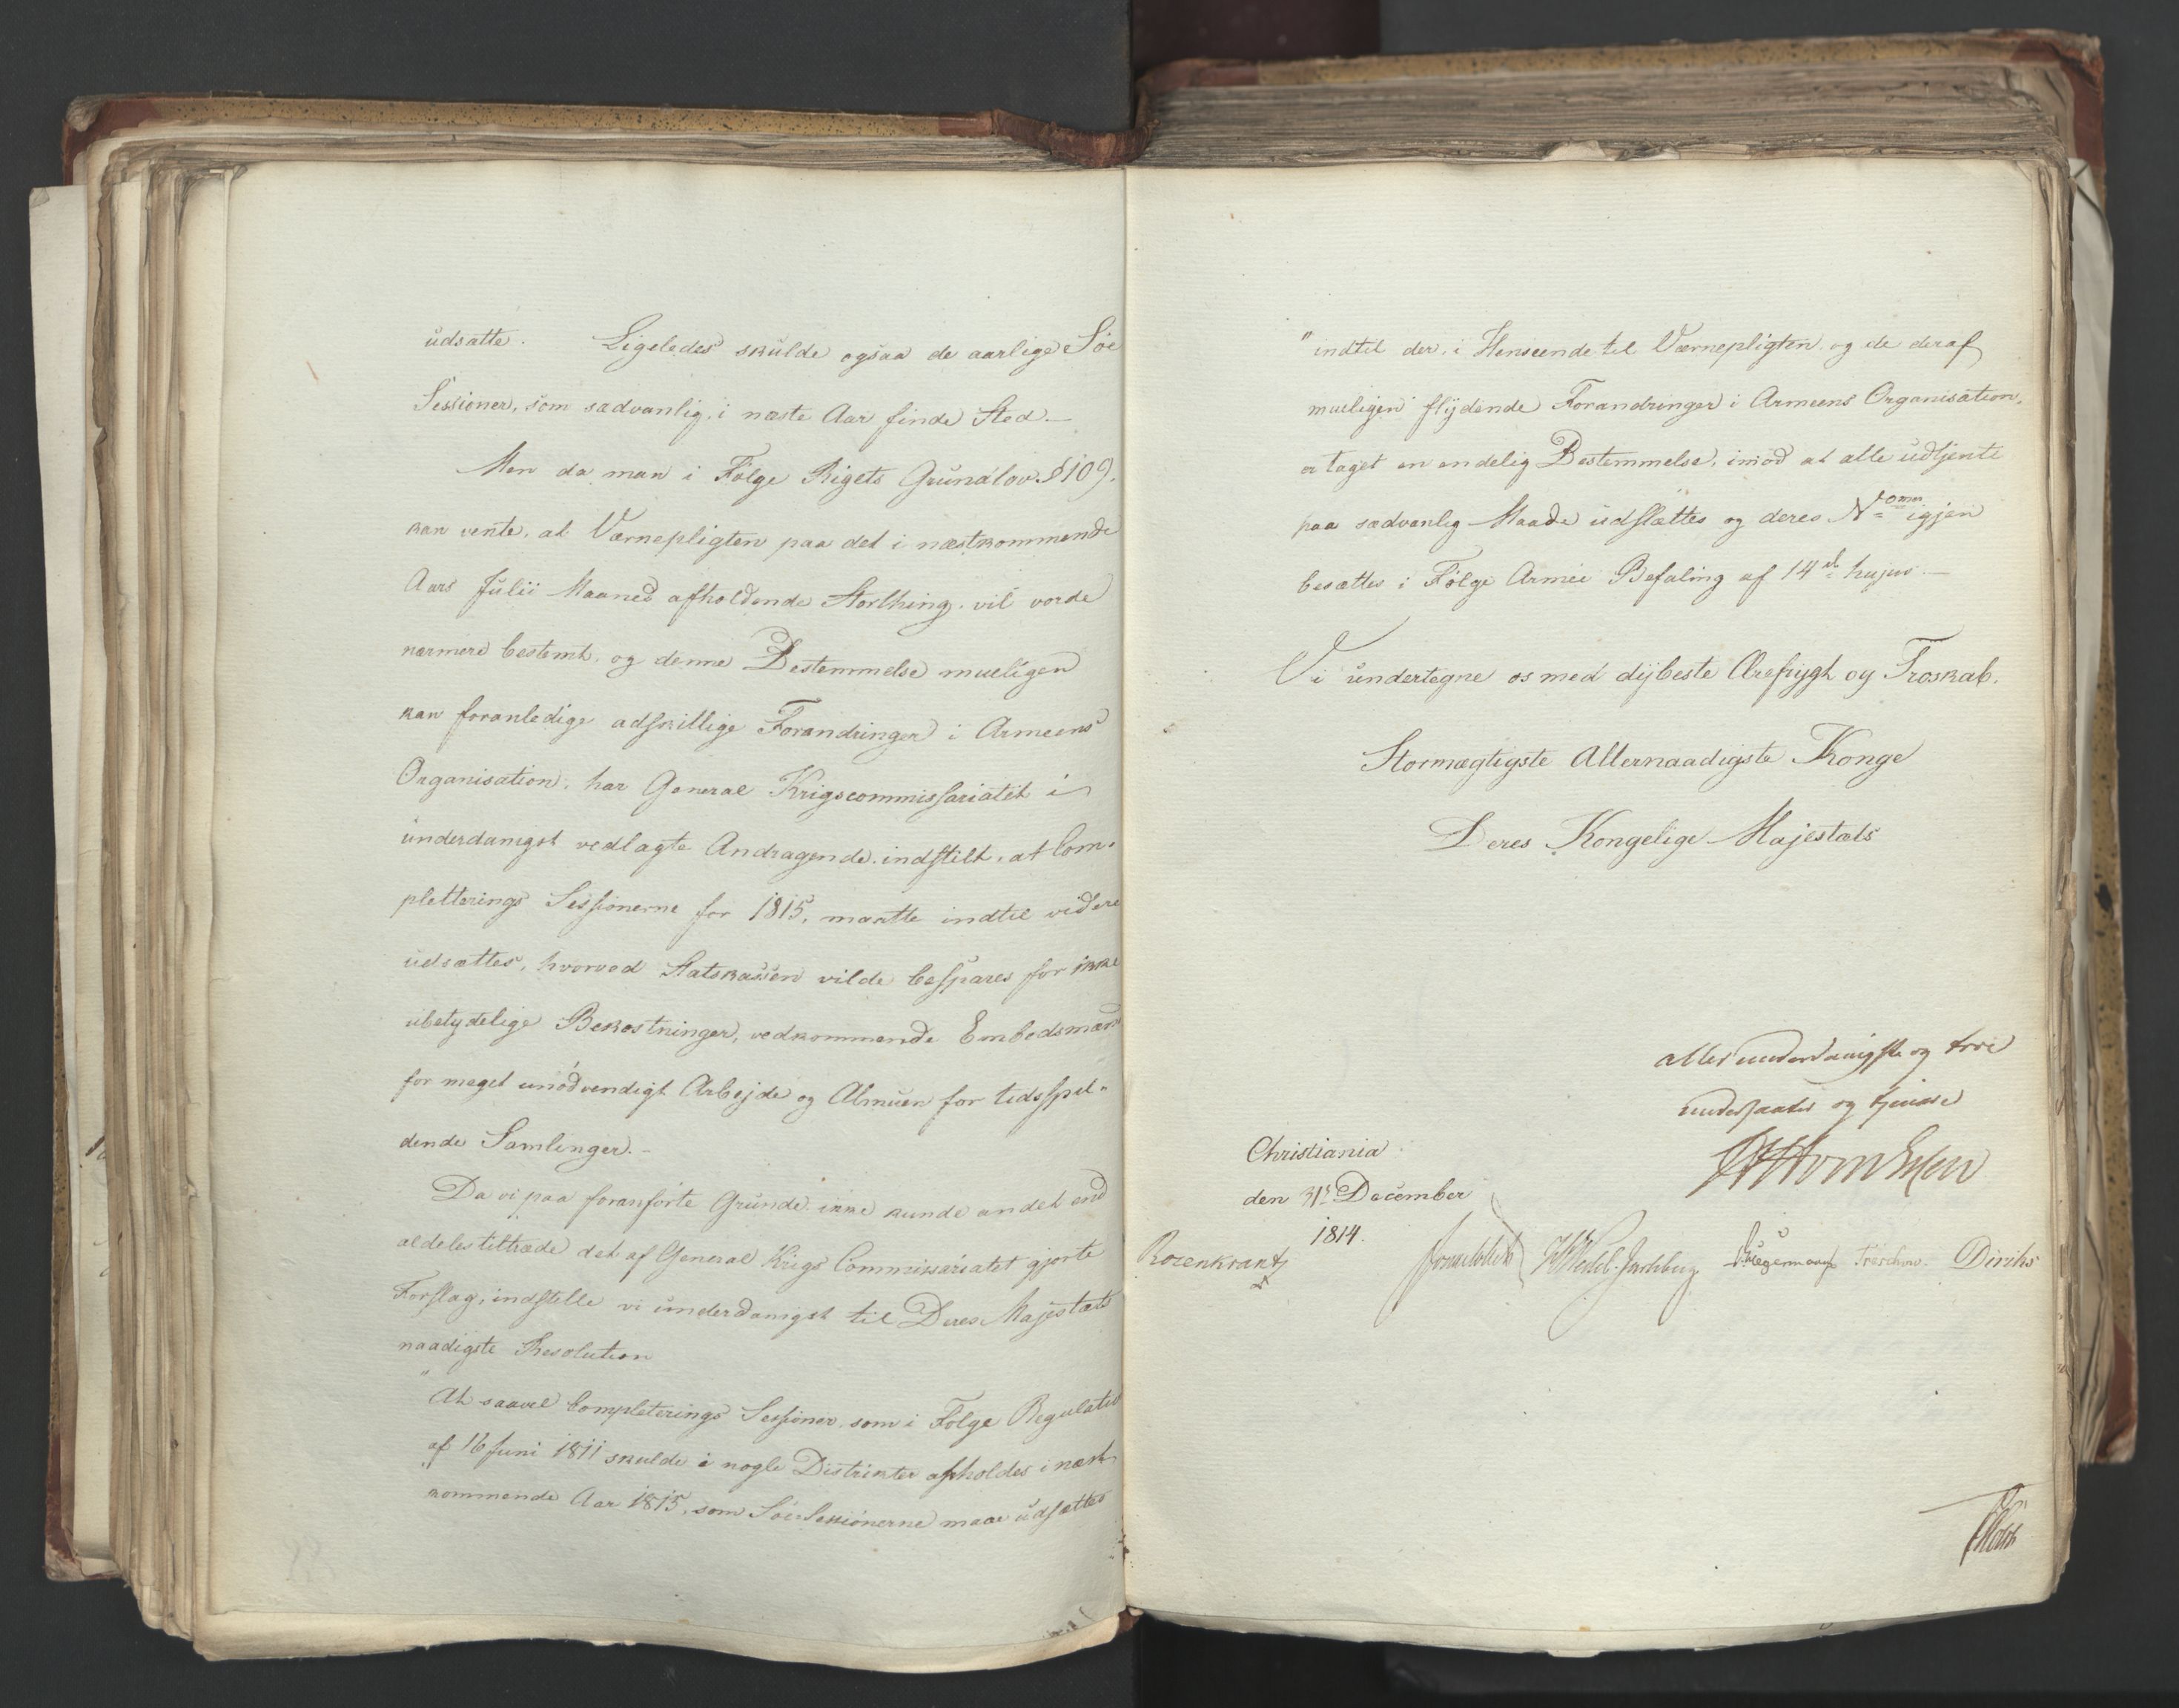 udsatte. Ligeledes skulde ogsaa de aarlige Söe
Sessioner, som sædvanlig, i næste Aar finde Sted.—
Men da man i Fölge Rigets Grundlov § 109.
kan vente, at Værnepligten paa det i næstkommende
Aars Julii Maaned afholdende Storthing, vil vorde
nærmere bestemt, og denne Bestemmelse mueligen
kan foranledige adskillige Forandringer i Armeens
Organisation, har General Krigscommissariatet i
underdanigst vedlagte Andragende indstilt, at Com-
pletterings Sessionerne for 1815, maatte indtil videre
udsættes, hvorved Statskassen vilde bespares for ikke
ubetydelige Bekostninger, vedkommende Embedsmænd
for meget unödvendigt Arbejde og Almuen for tidsspil-
dende Samlinger.—
Da vi paa foranförte Grunde ikke kunde andet end
aldeles tiltræde det af General Krigs Commissariatet gjorte
Forslag, indstille vi underdanigst til Deres Majestæts
naadigste Resolution
"At saavel Completerings Sessioner, som i Fölge Regulativ
af 16 Juni 1811 skulde i nogle Distrikter afholdes i næst-
kommende Aar 1815, som Söe-Sessionerne maae udsættes
"indtil der, i Henseende til Værnepligten og de deraf
mueligen flydende Forandringer i Armeens Organisation,
er taget en endelig Bestemmelse, imod at alle udtjente
paa sædvanlig Maade udslættes og deres Nomer igjen
besættes i Fölge Armée Befaling af 14de hujus.—
Vi undertegne os med dybeste Ærefrygt og Troskab.
Stormægtigste Allernaadigste Konge
Deres Kongelige Majestæts
allerunderdanigste og troe
undersaatter og tjenere
Christiania
den 31te December
1814.
Rosenkrantz Sommerhielm Wedel-Jarlsberg Hegermann Treschow. Diriks